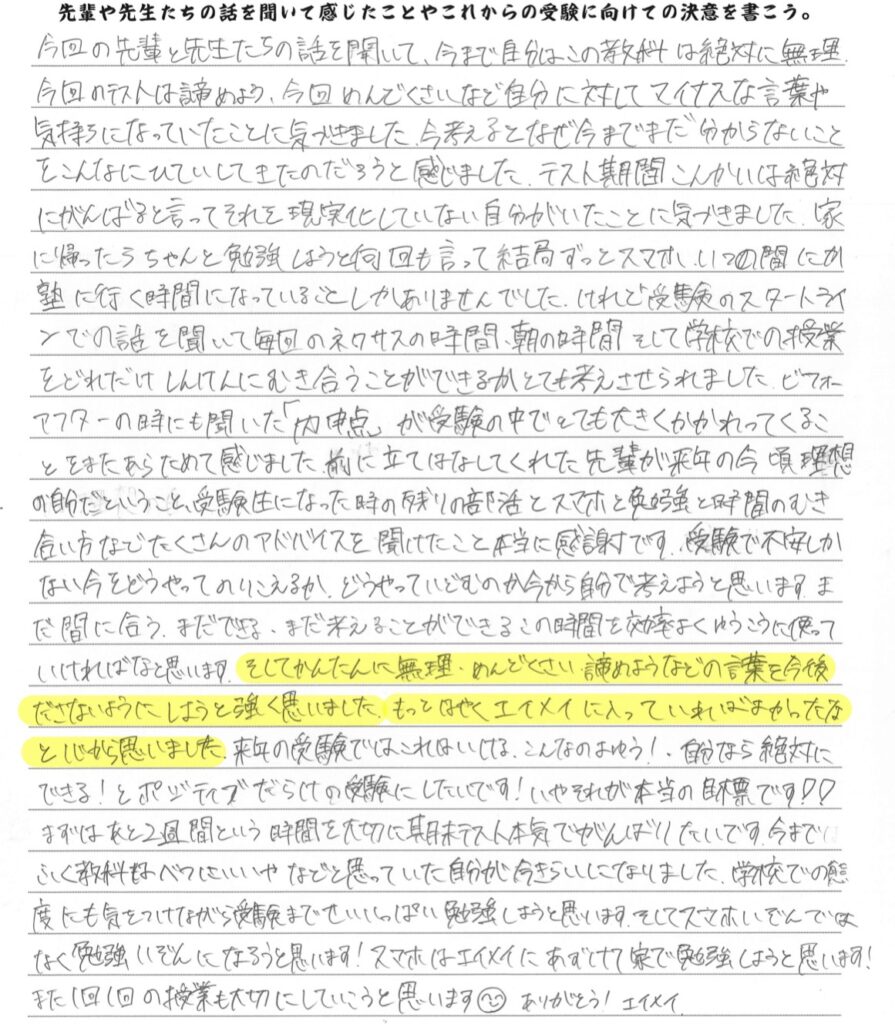 先輩や先生たちの話を聞いて感じたことやこれからの受験に向けての決意を書こう。
今回の先輩と先生たちの話を聞いて、今まで自分はこの教科は絶対に無理、
今回のテストは諦めよう、今回めんどくさいなど自分に対してマイナスな言葉や
気持ちになっていたことに気づきました。今考えるとなぜ今までまだ分からないこと
をこんなにひていしてきたのだろうと感じました。テスト期間こんかいは絶対
にがんばると言ってそれを現実化していない自分がいたことに気づきました。家
に帰ったらちゃんと勉強しようと何回も言って結局ずっとスマホ、いつの間にか
塾に行く時間になっていることしかありませんでした。けれど受験のスタートライ
ンでの話を聞いて毎回のネクサスの時間、朝の時間そして学校での授業
をどれだけしんけんにむき合うことができるかとても考えさせられました。ビフォー
アフターの時にも聞いた「内申点」が受験の中でとても大きくかかわってくるこ
とをまたあらためて感じました。前に立てはなしてくれた先輩が来年の今頃理想
の自分だということ、受験生になった時の残りの部活とスマホと勉強と時間のむき
合い方などたくさんのアドバイスを聞けたこと本当に感謝です。受験で不安しか
ない今をどうやってのりこえるか、どうやっていどむのか今から自分で考えようと思います。ま
だ間に合う、まだできる、まだ考えることができるこの時間を効率よくゆうこうに使って
いければなと思います。そしてかんたんに無理、めんどくさい、諦めようなどの言葉を今後
ださないようにしようと強く思いました。もっとはやくエイメイに入っていればよかったな
と心から思いました。来年の受験ではこれはいける、こんなのよゆう!、自分なら絶対に
できる!とポジティブだらけの受験にしたいです!いやそれが本当の目標です!!
まずはあと2週間という時間を大切に期末テスト本気でがんばりたいです。今まで
ふく教科もべつにいいやなどと思っていた自分が今きらいになりました。学校での態
度にも気をつけながら受験までせいいっぱい勉強しようと思います。そしてスマホいぞんでは
なく勉強いぞんになろうと思います!スマホはエイメイにあずけて家で勉強しようと思います!
また1回1回の授業も大切にしていこうと思います☺ ありがとう!エイメイ